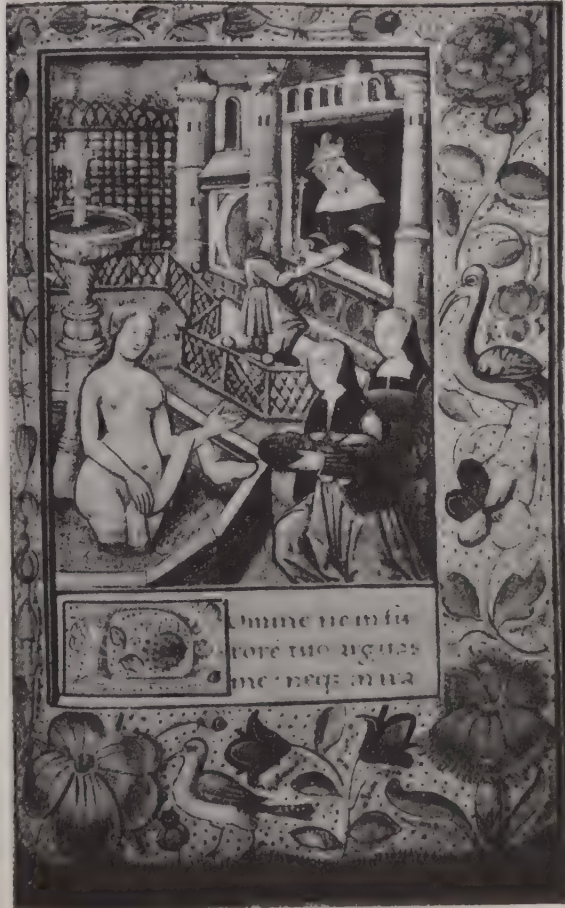 omine ne in fu
rore tuo arguas
me: neq; in ira